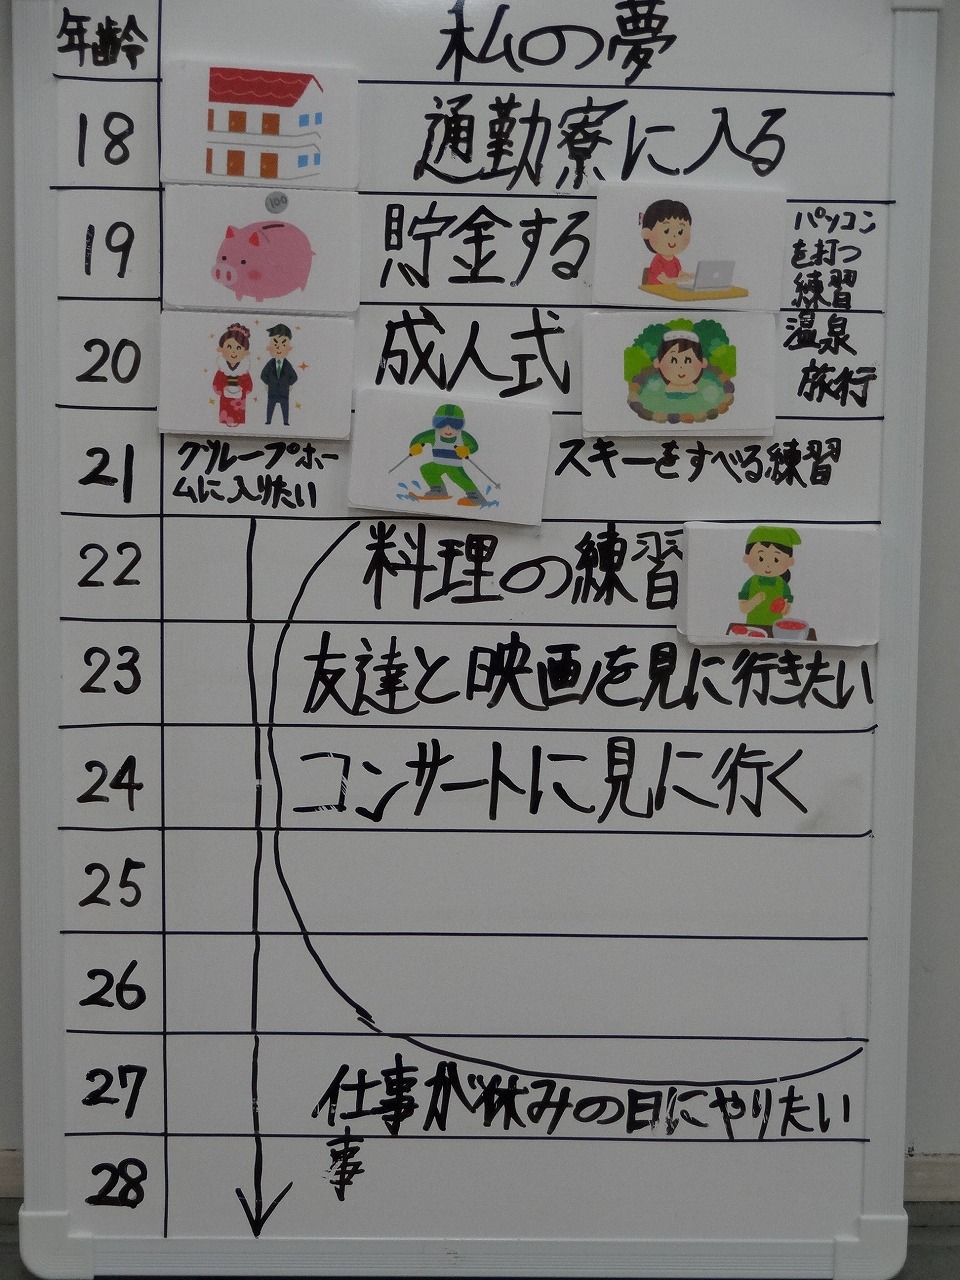 年齢 私の夢
18 通勤寮に入る
19 貯金する パソコン
を打つ
練習
100
20 成人式 温泉
旅行
21 グループホー
ムに入りたい スキーをすべる練習
22 料理の練習
23 友達と映画を見に行きたい
24 コンサートに見に行く
25
26
27 仕事が休みの日にやりたい
事
28